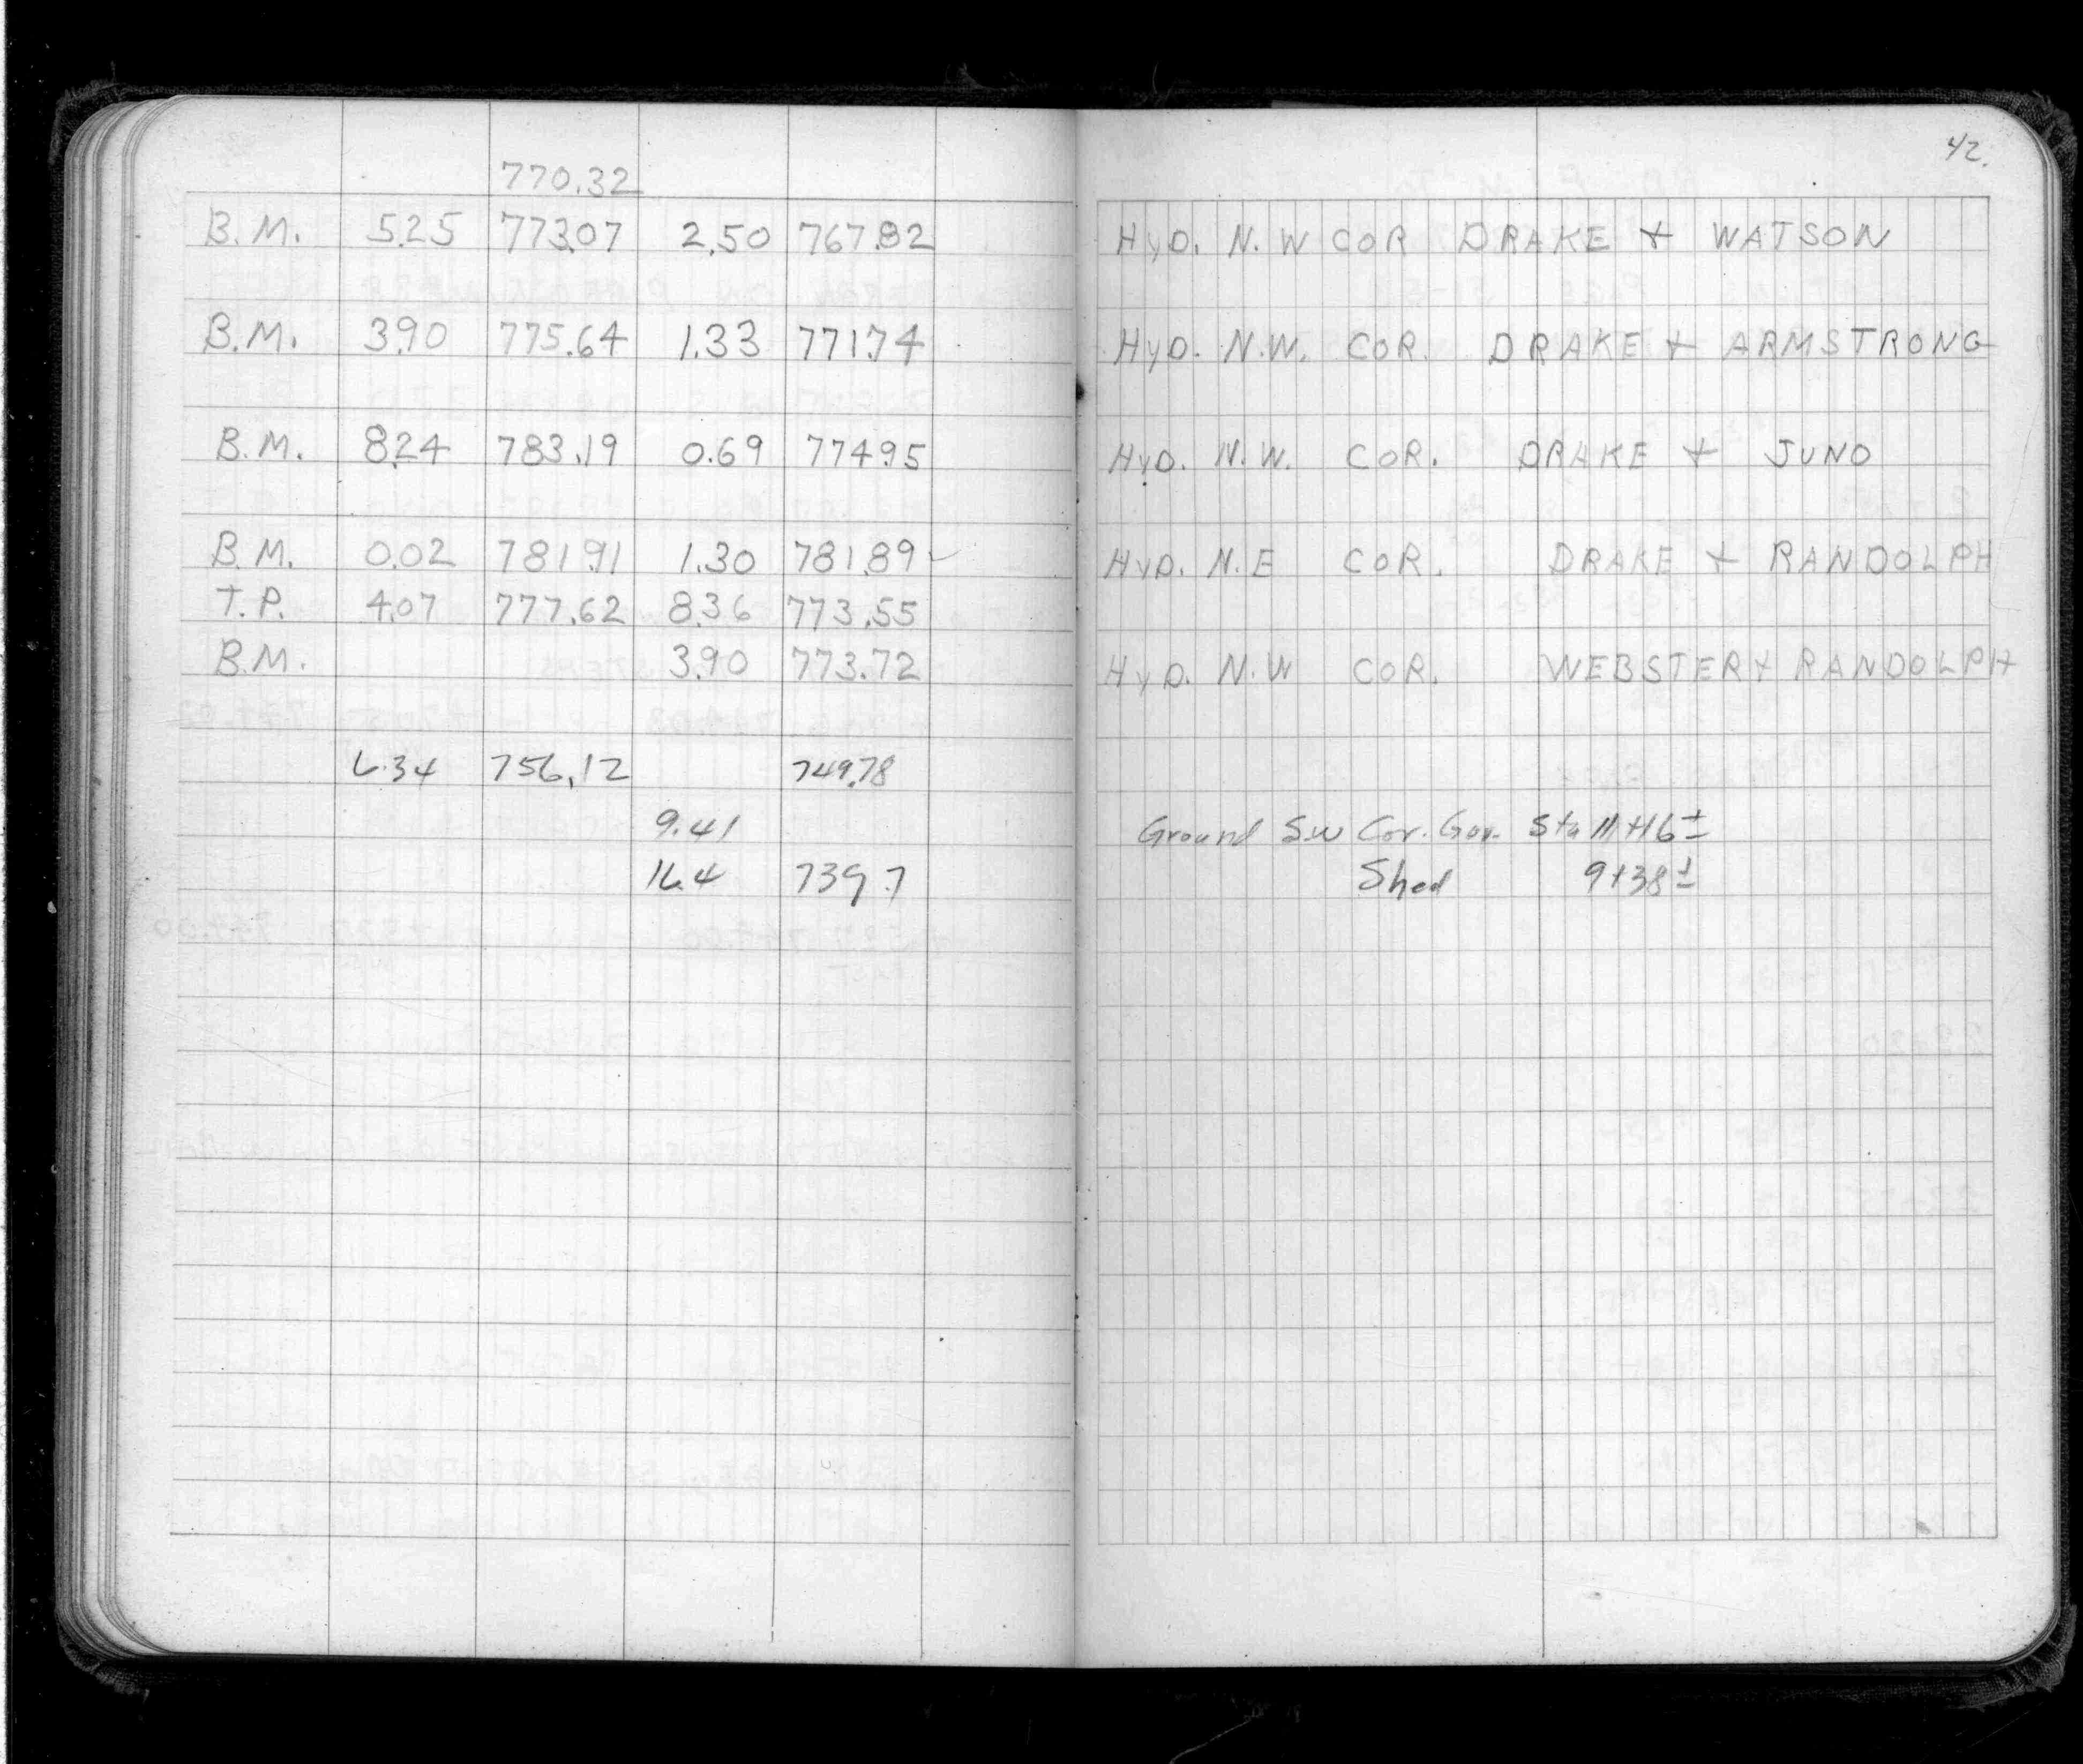 42.
770.32
B.M. 5.25 773.07 2.50 767.82 HYD. N.W COR DRAKE + WATSON
B.M. 3.90 775.64 1.33 771.74 HYD. N.W. COR. DRAKE + ARMSTRONG
B.M. 8.24 783.19 0.69 774.95 HYD. N.W. COR. DRAKE + JUNO
B.M. 0.02 781.91 1.30 781.89 HYD. N.E COR. DRAKE + RANDOLPH
T.P. 4.07 777.62 8.36 773.55
B.M. 3.90 773.72 HYD. N.W COR. WEBSTER + RANDOLPH
6.34 756.12 749.78
9.41 Ground S.W Cor. Gar. Sta 11+16±
16.4 739.7 Shed 9+38±